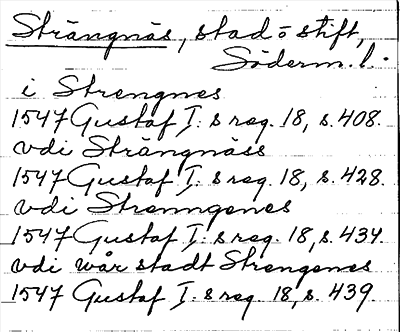 Strängnäs, stad o stift,
Söderm. l.
i Strengnes
1547 Gustaf I:s reg. 18, s. 408.
vdi Strängnäss
1547 Gustaf I:s reg. 18, s. 428.
vdi Strenngenes
1547 Gustaf I:s reg. 18, s. 434.
vdi wår stadt Strengenes
1547 Gustaf I:s reg. 18, s. 439.